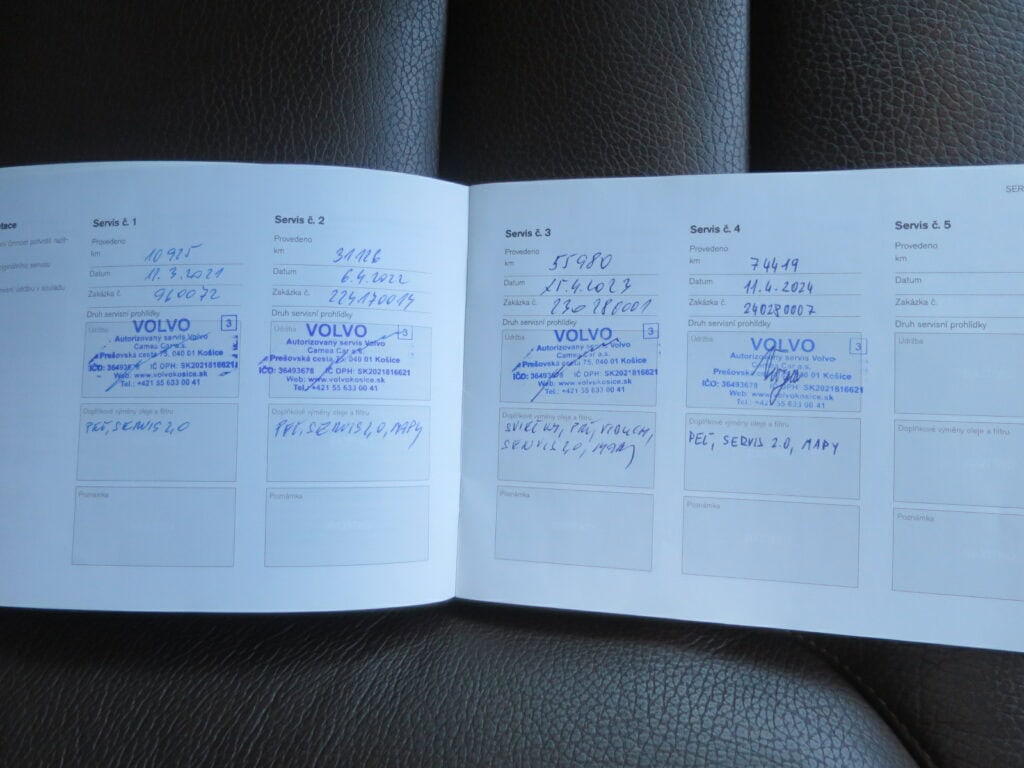 SER
Servis č. 1
Provedeno
km 10 925
Datum 11.3.2021
Zakázka č. 960072
Druh servisní prohlídky
Údržba
VOLVO 3
Autorizovaný servis Volvo
Camea Car a.s.
Prešovská cesta 75, 040 01 Košice
IČO: 36493678 IČ DPH: SK2021816621
Web: www.volvokosice.sk
Tel.: +421 55 633 00 41
Doplňkové výměny oleje a filtru
PEĽ, SERVIS 2,0
Poznámka
Servis č. 2
Provedeno
km 31126
Datum 6.4.2022
Zakázka č. 224170014
Druh servisní prohlídky
Údržba
VOLVO 3
Autorizovaný servis Volvo
Camea Car a.s.
Prešovská cesta 75, 040 01 Košice
IČO: 36493678 IČ DPH: SK2021816621
Web: www.volvokosice.sk
Tel.: +421 55 633 00 41
Doplňkové výměny oleje a filtru
PEĽ, SERVIS 2,0, MAPY
Poznámka
Servis č. 3
Provedeno
km 55980
Datum 25.4.2023
Zakázka č. 230286001
Druh servisní prohlídky
Údržba
VOLVO 3
Autorizovaný servis Volvo
Camea Car a.s.
Prešovská cesta 75, 040 01 Košice
IČO: 36493678 IČ DPH: SK2021816621
Web: www.volvokosice.sk
Tel.: +421 55 633 00 41
Doplňkové výměny oleje a filtru
SVIEČKY, PEĽ, VZDUCH,
SERVIS 2,0, MAPY
Poznámka
Servis č. 4
Provedeno
km 74419
Datum 11.4.2024
Zakázka č. 240280007
Druh servisní prohlídky
Údržba
VOLVO 3
Autorizovaný servis Volvo
Prešovská 040 01 Košice
IČO: 36493678 IČ DPH: SK2021816621
Web: www.volvokosice.sk
Tel.: +421 55 633 00 41
Doplňkové výměny oleje a filtru
PEĽ, SERVIS 2.0, MAPY
Poznámka
Servis č. 5
Provedeno
km
Datum
Zakázka č.
Druh servisní prohlídky
Údržba
Doplňkové výměny oleje a filtru
Poznámka